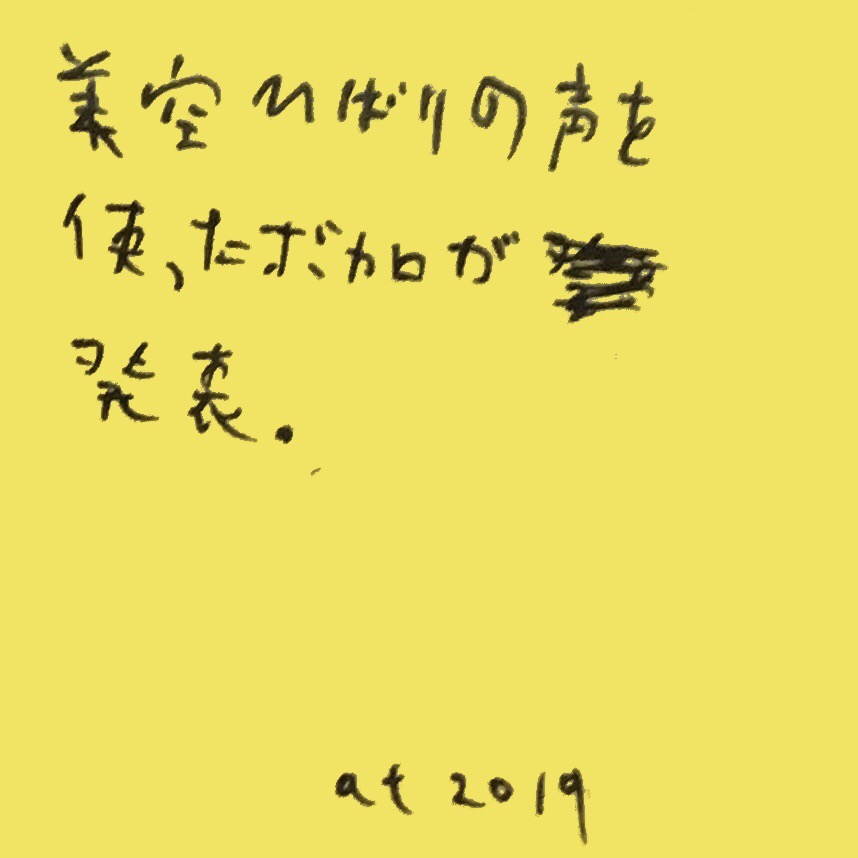 美空ひばりの声を
使ったボカロが
発表.
at 2019